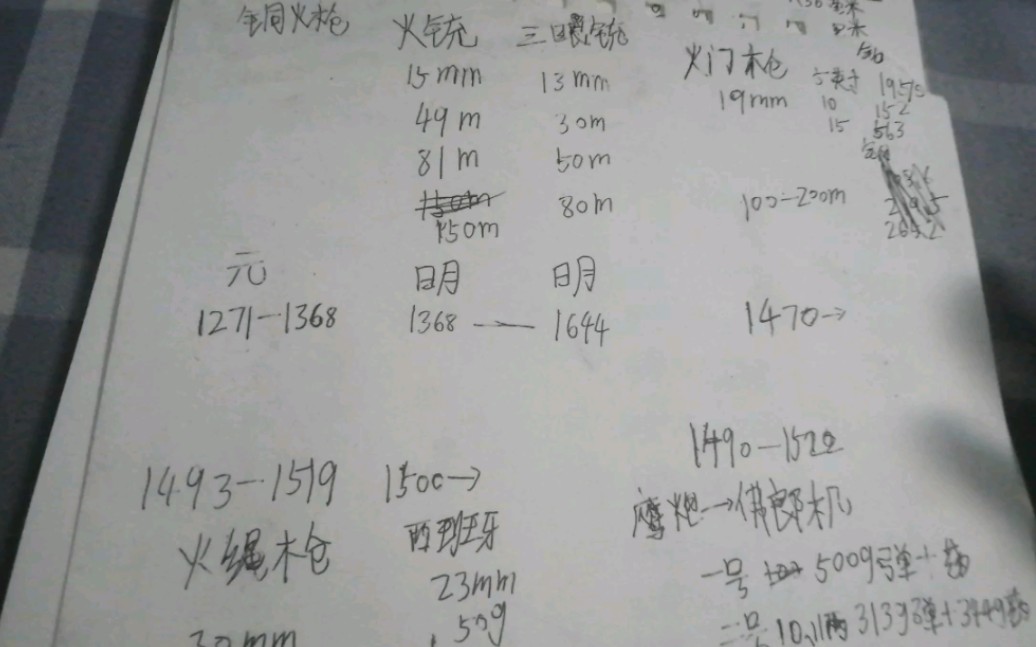 铜火枪 火铳 三眼铳 火门枪
15mm 13mm 19mm 5英寸 1950
10 152
49m 30m 15 563
81m 50m
80m 100-200m
150m
元 明 明
1271-1368 1368 — 1644 1470→
1490-1522
1493-1519 1500→
鹰炮→佛郎机
火绳枪 西班牙
23mm 一号 500g弹+药
50g 二号 10.11两 313g弹+344g药
30mm